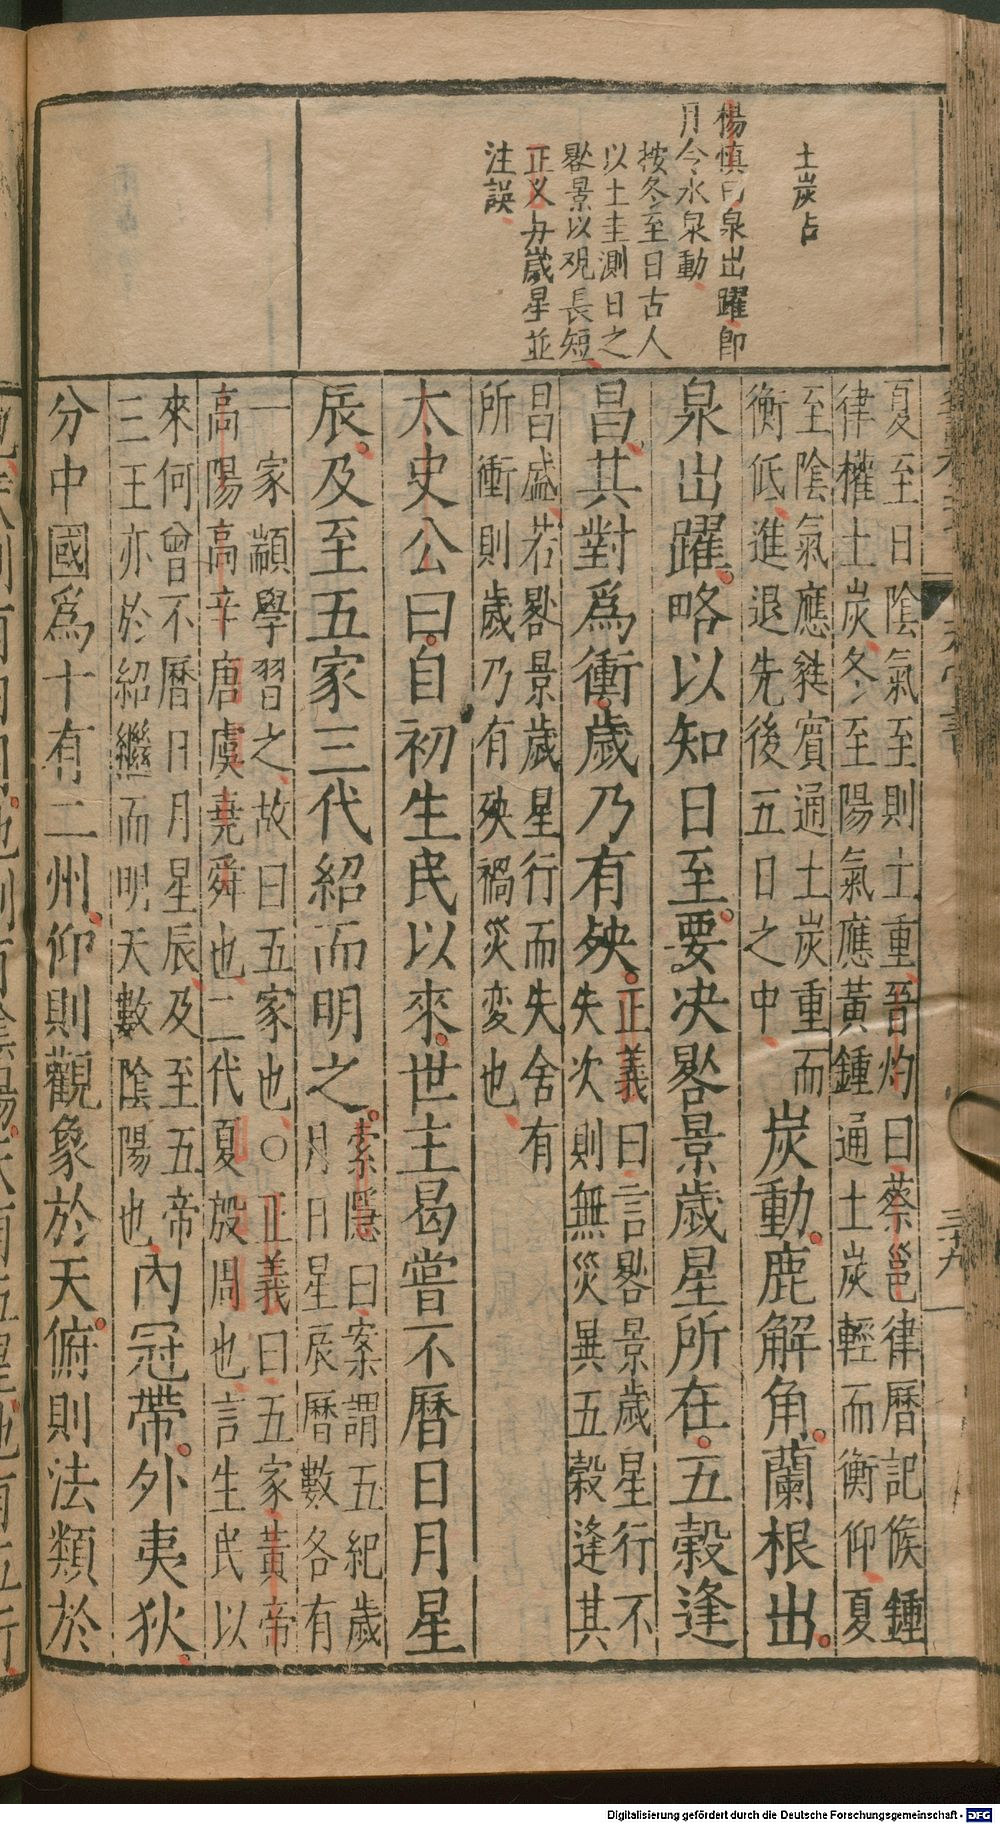 土炭占
楊慎曰泉出躍即
月令水泉動
按冬至日古人
以土圭測日之
晷景以观長短
正义与歲星並
注誤
夏至日陰氣至則土重晉灼曰蔡邕律曆記候鍾
律權土炭冬至陽氣應黃鍾通土炭輕而衡仰夏
至陰氣應蕤賓通土炭重而
衡低進退先後五日之中
炭動鹿解角蘭根出
泉出躍略以知日至要决晷景歲星所在五穀逢
昌其對爲衝歲乃有殃
正義曰言晷景歲星行不
失次則無災異五穀逢其
昌盛若晷景歲星行而失舍有
所衝則歲乃有殃禍災変也
太史公曰自初生民以來世主曷嘗不曆日月星
辰及至五家三代紹而明之
索隱曰案謂五紀歲
月日星辰曆數各有
一家顓學習之故曰五家也○正義曰五家黃帝
高陽高辛唐虞堯舜也三代夏殷周也言生民以
來何曾不曆日月星辰及至五帝
三王亦於紹繼而明天數陰陽也
內冠帶外夷狄
分中國爲十有二州仰則觀象於天俯則法類於
三十九
Digitalisierung gefördert durch die Deutsche Forschungsgemeinschaft - DFG